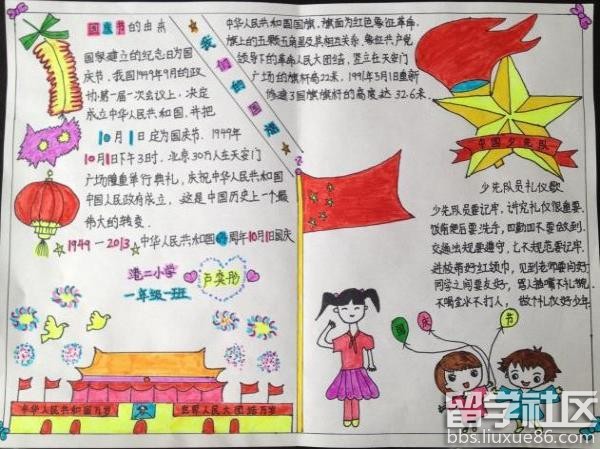 国庆节的由来
国家建立的纪念日为国
庆节，我国1949年9月的政
协第一届一次会议上，决定
成立中华人民共和国，并把
10月1日定为国庆节，1949年
10月1日下午3时，北京30万人在天安门
广场隆重举行典礼，庆祝中华人民共和国
中国人民政府成立，这是中国历史上一个最
伟大的转变。
1949—2013中华人民共和国64周年10月1日国庆
港二小学
一年级一班
我们的国旗
中华人民共和国国旗，旗面为红色象征革命，
旗上的五颗五角星及其相互关系，象征共产党
领导下的革命人民大团结，竖立在天安门
广场的旗杆高22米，1991年5月1日重新
修建了国旗旗杆的高度达32.6米。
中国少先队
少先队员礼仪歌
少先队员要记牢，讲究礼仪很重要，
饭前便后要洗手，四勤四不要做到，
交通出规要遵守，七不规范要记牢，
进校带好红领巾，见到老师要问好，
同学之间要友好，骂人插嘴不礼貌，
不喝金水不打人，做个礼仪好少年
国庆节
中华人民共和国万岁
世界人民大团结万岁
留学社区
bbs.liuxue86.com